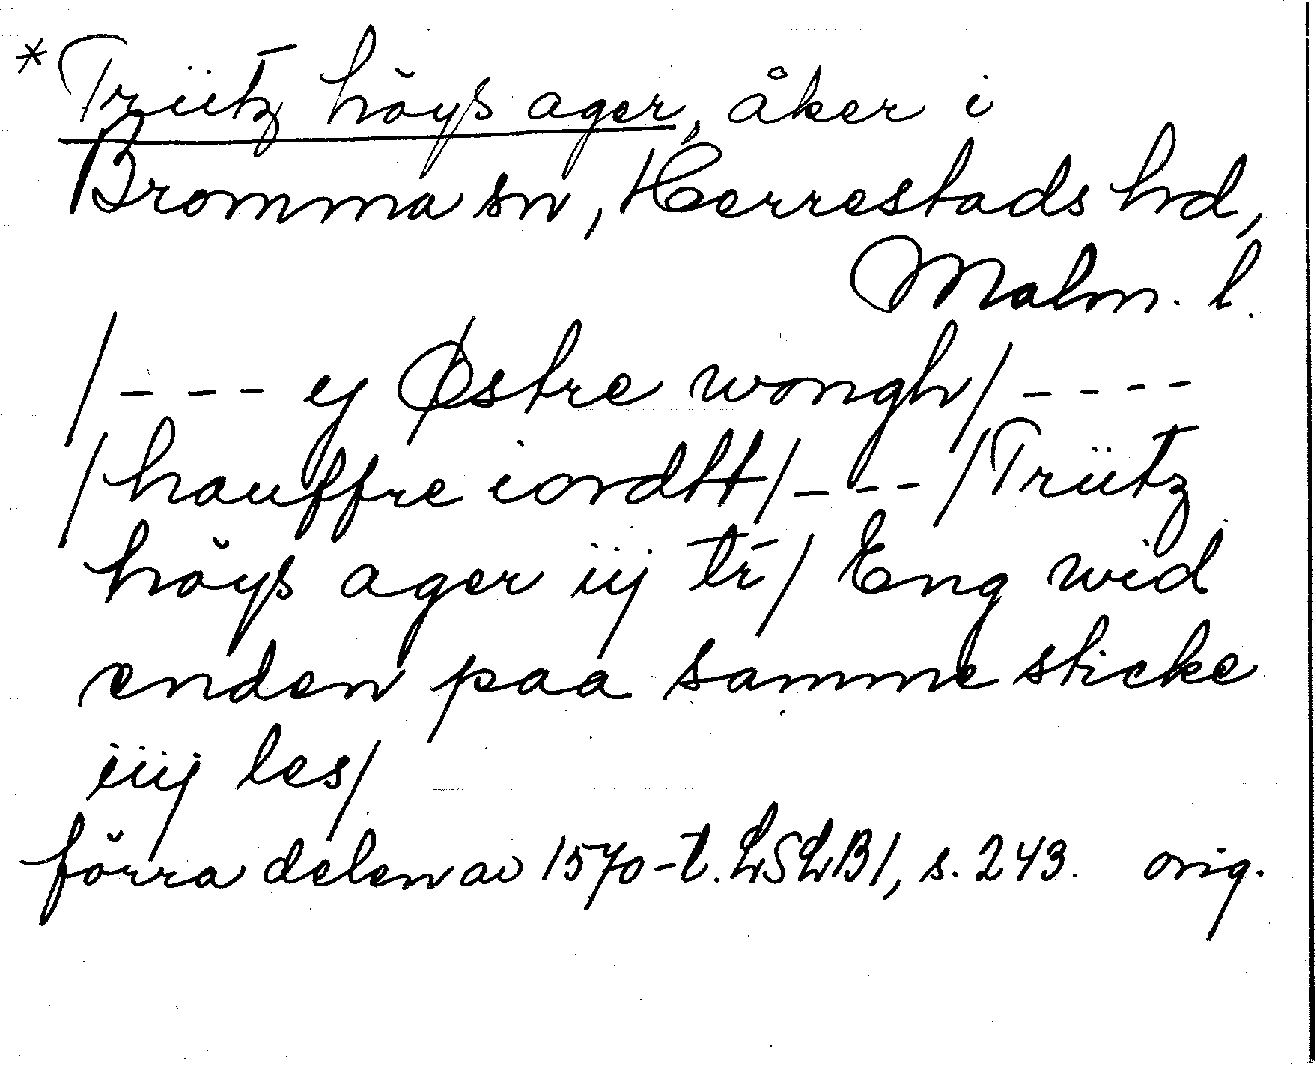 * Trütz höÿs ager, åker i
Bromma sn, Herrestads hd,
Malm. l.
/---ej Østre wongh/----
/hauffre iordtt/---/Trütz
höÿs ager iij tr̄/ Eng wid
enden paa samme sticke
iiij les/
förra delen av 1570-t. LSLB1, s. 243. orig.